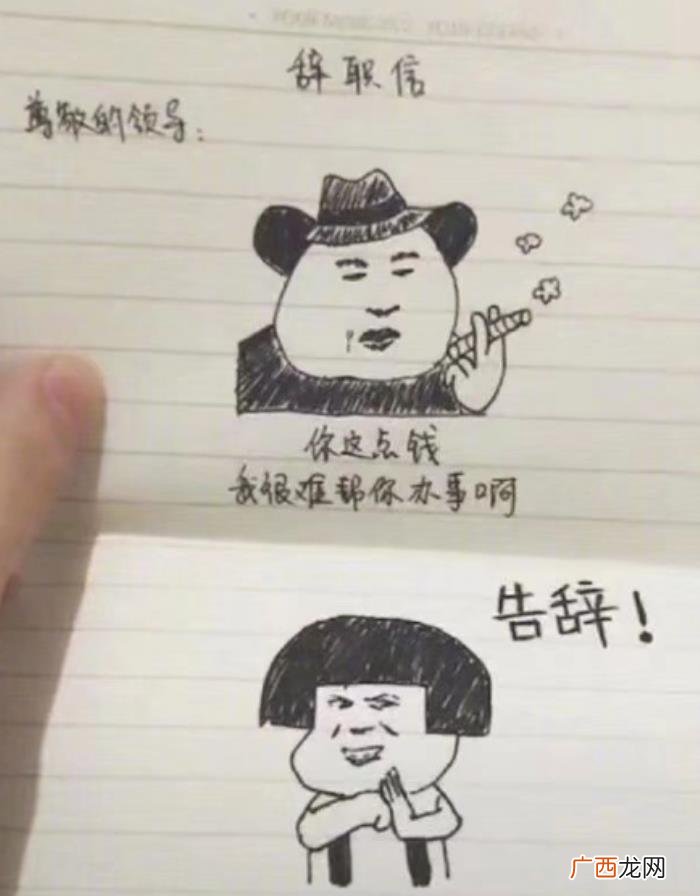 辞职信
尊敬的领导:
你这点钱
我很难帮你办事啊
告辞!
广西龙网